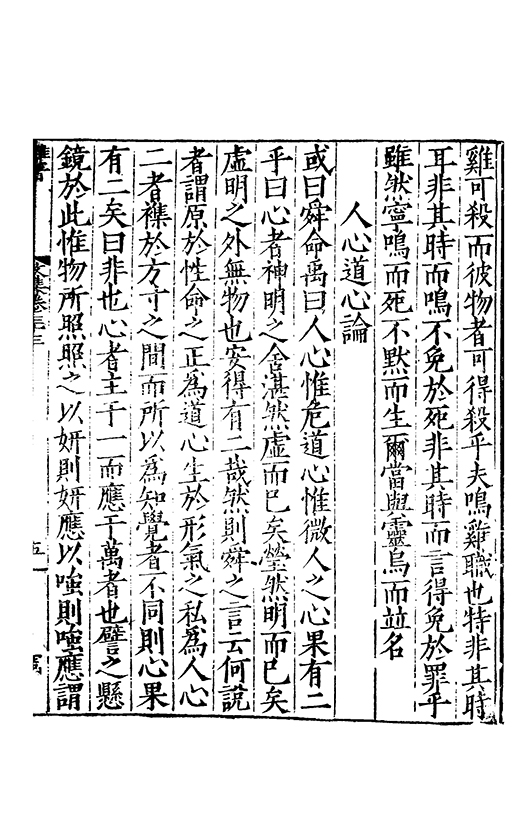 雞可殺而彼物者可得殺乎夫鳴雞職也特非其時
耳非其時而鳴不免於死非其時而言得免於罪乎
雖然寧鳴而死不默而生爾當與靈烏而並名
人心道心論
或曰舜命禹曰人心惟危道心惟微人之心果有二
乎曰心者神明之舍湛然虛而已矣瑩然明而已矣
虛明之外無物也安得有二哉然則舜之言云何說
者謂原於性命之正為道心生於形氣之私為人心
二者襍於方寸之間而所以為知覺者不同則心果
有二矣曰非也心者主于一而應于萬者也譬之懸
鏡於此惟物所照照之以妍則妍應以嗤則嗤應謂
文集卷之三
五